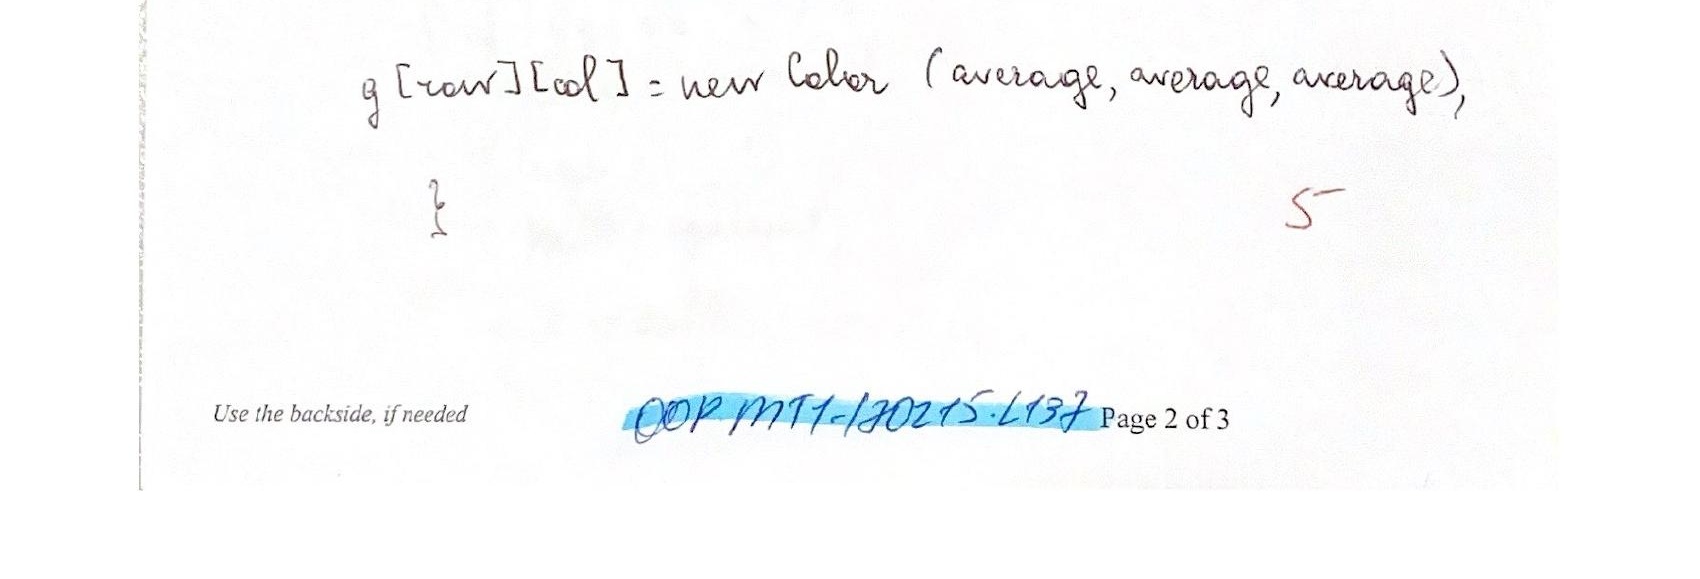 g[row][col] = new Color (average, average, average),
}
5
Use the backside, if needed
OOP MT1-170215.L137 Page 2 of 3